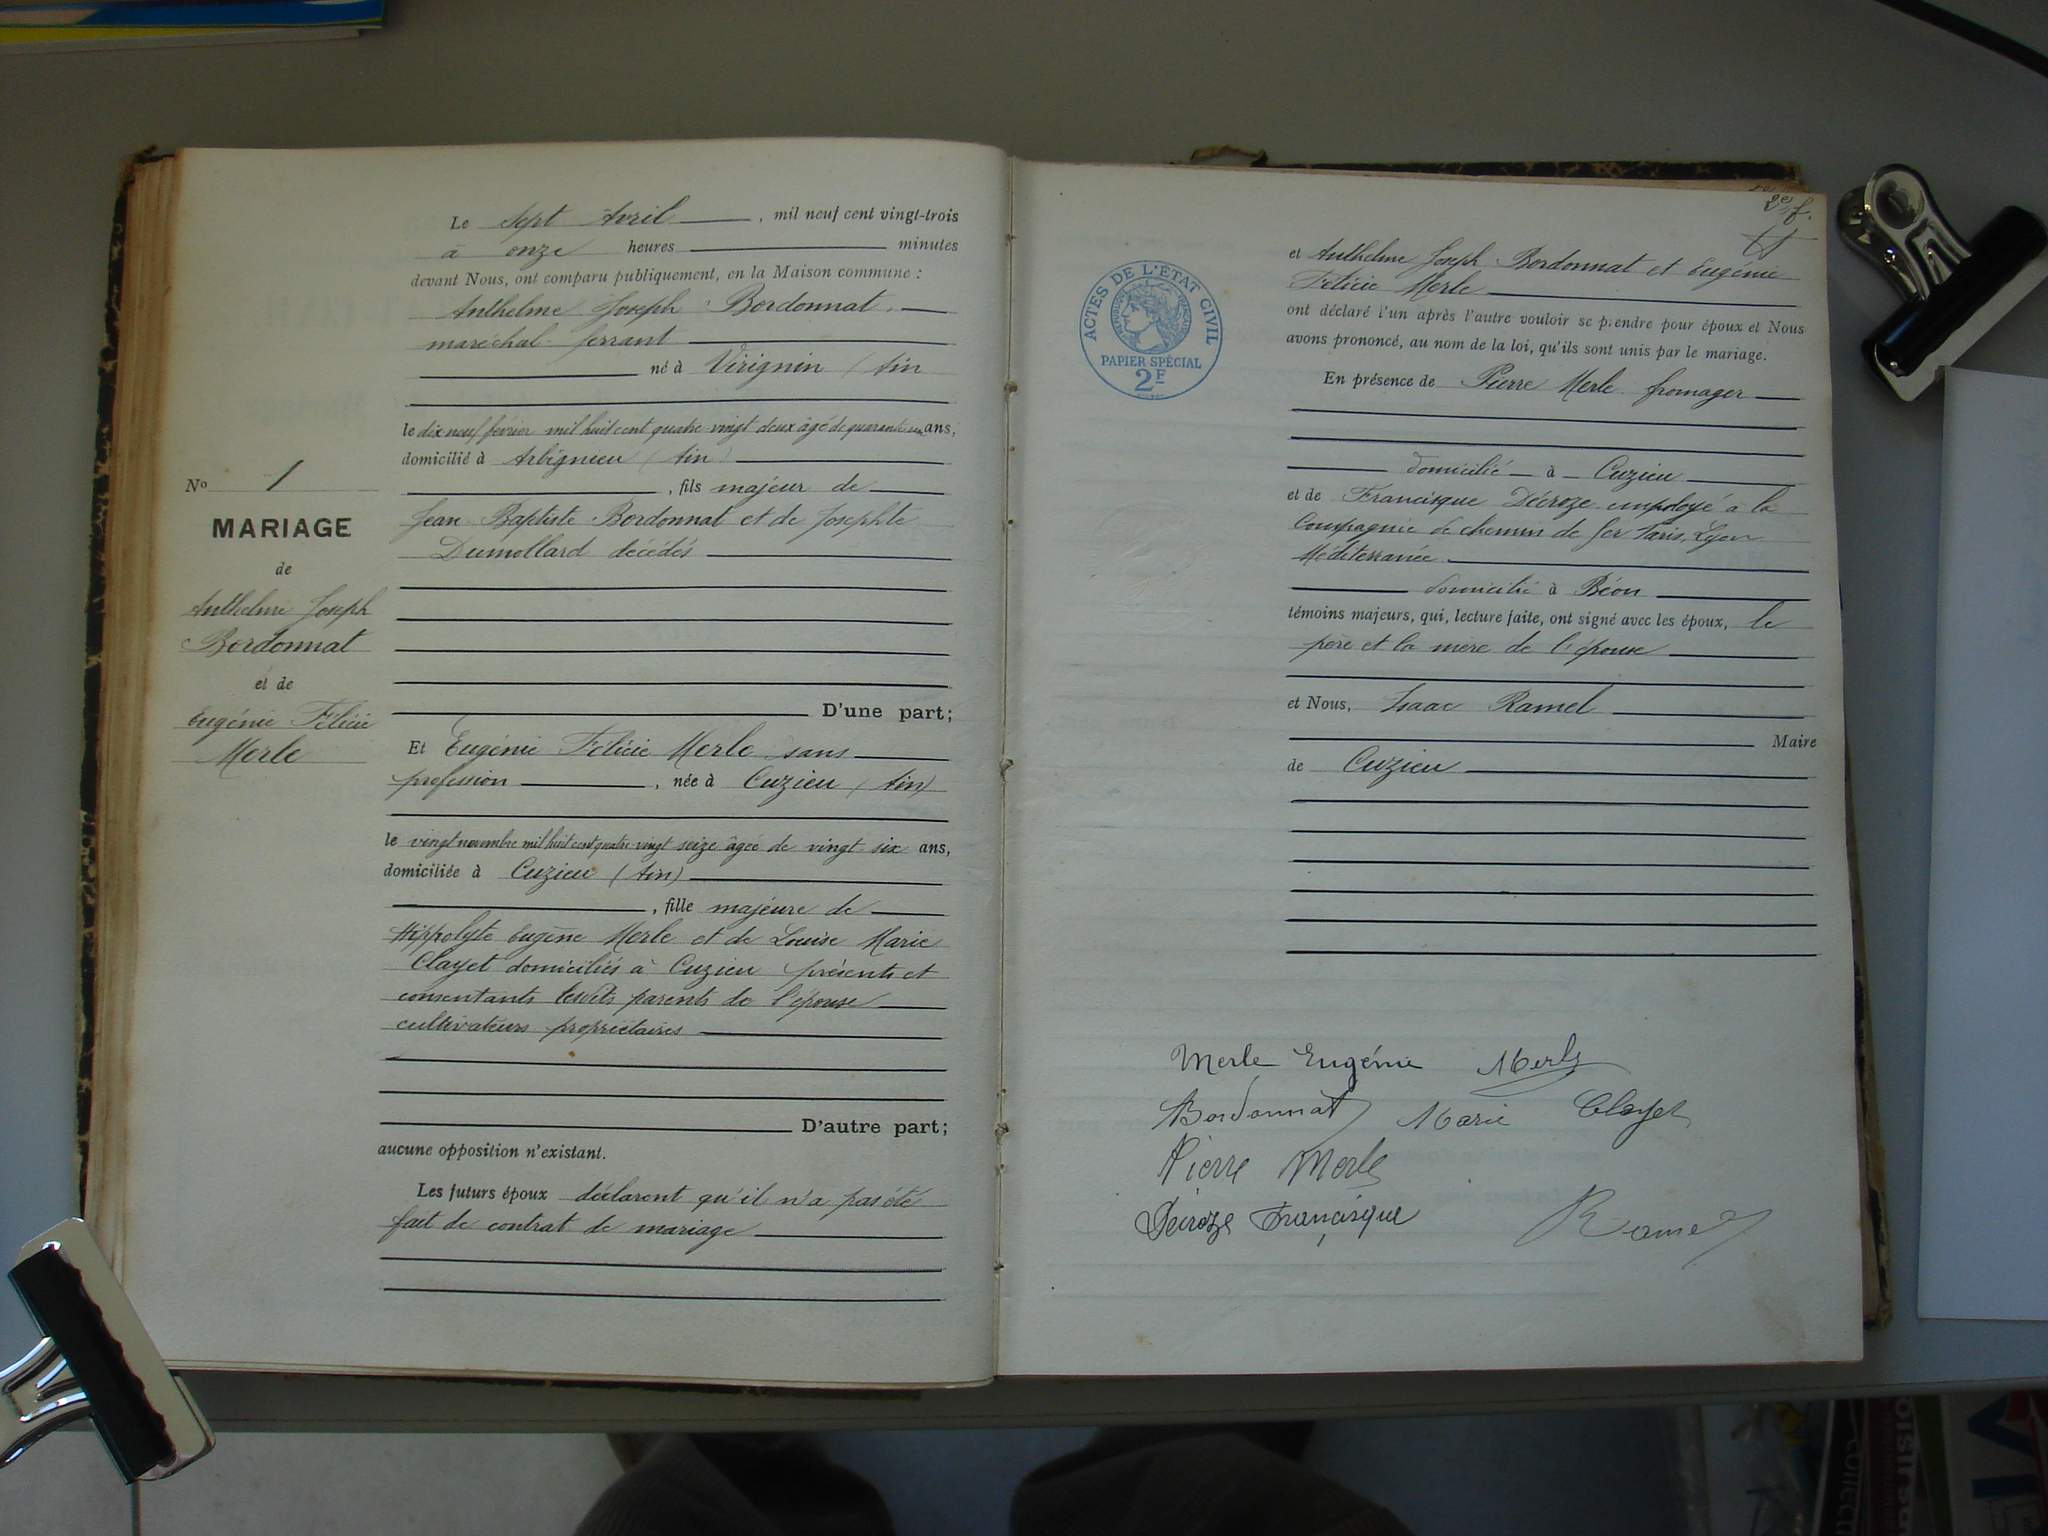 Le sept Avril, mil neuf cent vingt-trois
à onze heures minutes
devant Nous, ont comparu publiquement, en la Maison commune :
Anthelme Joseph Bordonnat,
maréchal-ferrant
né à Virignin (Ain
le dix neuf février mil huit cent quatre vingt deux âgé de quarante un ans,
domicilié à Arbignieu (Ain)
, fils majeur de
Jean Baptiste Bordonnat et de Josephte
Dumollard décédés
D'une part;
Et Eugénie Félicie Merle sans
profession, née à Cuzieu (Ain)
le vingt novembre mil huit cent quatre-vingt seize âgée de vingt six ans,
domiciliée à Cuzieu (Ain)
, fille majeure de
Hippolyte Eugène Merle et de Louise Marie
Clayet domiciliés à Cuzieu présents et
consentants lesdits parents de l'épouse
cultivateurs propriétaires
D'autre part;
aucune opposition n'existant.
Les futurs époux déclarent qu'il n'a pas été
fait de contrat de mariage
No 1
MARIAGE
de
Anthelme Joseph
Bordonnat
et de
Eugénie Félicie
Merle
2e f.
ACTES DE L'ETAT CIVIL
PAPIER SPÉCIAL
2F
et Anthelme Joseph Bordonnat et Eugénie
Félicie Merle
ont déclaré l'un après l'autre vouloir se prendre pour époux et Nous
avons prononcé, au nom de la loi, qu'ils sont unis par le mariage.
En présence de Pierre Merle fromager
domicilié à Cuzieu
et de Francisque Décroze employé à la
Compagnie de chemins de fer Paris, Lyon
Méditerranée
domicilié à Béon
témoins majeurs, qui, lecture faite, ont signé avec les époux, le
père et la mère de l'épouse
et Nous, Isaac Ramel
Maire
de Cuzieu
Merle Eugénie Merle
Bordonnat Marie Clayet
Pierre Merle
Décroze Francisque Ramel